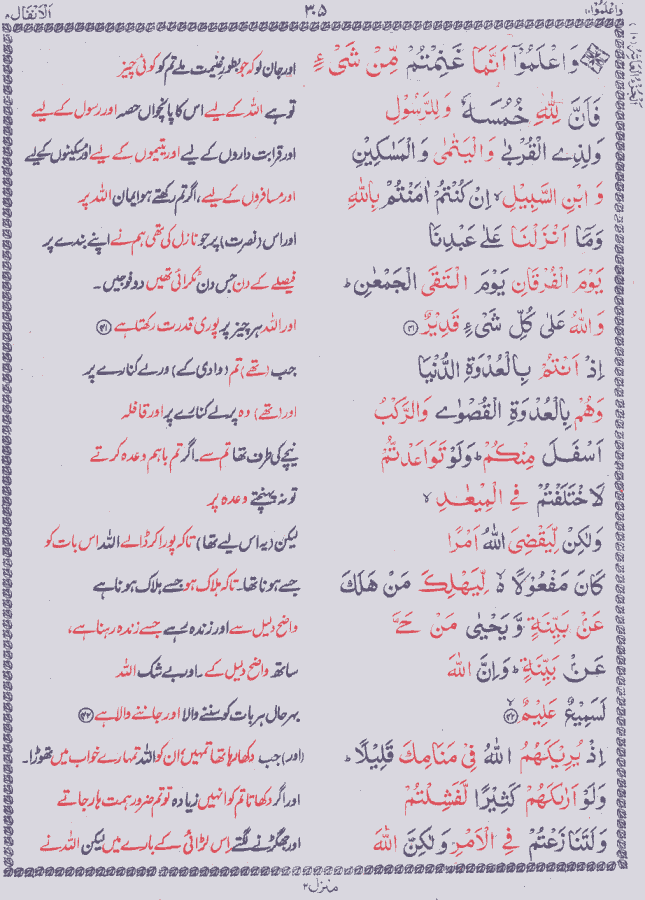 واعلموا ١٠ ٣٠٥ الانفال ٨
وَاعْلَمُوْٓا اَنَّمَا غَنِمْتُمْ مِّنْ شَیْءٍ اور جان لو کہ جو بطورِ غنیمت ملے تم کو کوئی چیز
فَاَنَّ لِلّٰهِ خُمُسَهٗ وَلِلرَّسُوْلِ تو ہے اللہ کے لیے اس کا پانچواں حصہ اور رسول کے لیے
وَلِذِی الْقُرْبٰى وَالْیَتٰمٰى وَالْمَسٰكِیْنِ اور قرابت داروں کے لیے اور یتیموں کے لیے اور مسکینوں کے لیے
وَ ابْنِ السَّبِیْلِ ۙ اِنْ كُنْتُمْ اٰمَنْتُمْ بِاللّٰهِ اور مسافروں کے لیے، اگر تم رکھتے ہو ایمان اللہ پر
وَمَآ اَنْزَلْنَا عَلٰى عَبْدِنَا اور اس (نصرت) پر جو نازل کی تھی ہم نے اپنے بندے پر
یَوْمَ الْفُرْقَانِ یَوْمَ الْتَقَى الْجَمْعٰنِ ؕ فیصلے کے دن جس دن ٹکرائی تھیں دو فوجیں۔
وَاللّٰهُ عَلٰى كُلِّ شَیْءٍ قَدِیْرٌ ﴿٤١﴾ اور اللہ ہر چیز پر پوری قدرت رکھتا ہے ﴿٤١﴾
اِذْ اَنْتُمْ بِالْعُدْوَةِ الدُّنْیَا جب (تھے) تم (وادی کے) ورے کنارے پر
وَهُمْ بِالْعُدْوَةِ الْقُصْوٰى وَالرَّكْبُ اور (تھے) وہ پرلے کنارے پر اور قافلہ
اَسْفَلَ مِنْكُمْ ؕ وَلَوْ تَوَاعَدْتُّمْ نیچے کی طرف تھا تم سے۔ اگر تم باہم وعدہ کرتے
لَاخْتَلَفْتُمْ فِی الْمِیْعٰدِ ۙ تو نہ پہنچتے وعدہ پر
وَلٰكِنْ لِّیَقْضِیَ اللّٰهُ اَمْرًا لیکن (یہ اس لیے تھا) تاکہ پورا کر ڈالے اللہ اس بات کو
كَانَ مَفْعُوْلًا ۙ۬ لِّیَهْلِكَ مَنْ هَلَكَ جسے ہونا تھا۔ تاکہ ہلاک ہو جسے ہلاک ہونا ہے
عَنْۢ بَیِّنَةٍ وَّیَحْیٰى مَنْ حَیَّ واضح دلیل سے اور زندہ رہے جسے زندہ رہنا ہے،
عَنْۢ بَیِّنَةٍ ؕ وَاِنَّ اللّٰهَ ساتھ واضح دلیل کے۔ اور بے شک اللہ
لَسَمِیْعٌ عَلِیْمٌ ۙ﴿٤٢﴾ بہرحال ہر بات کو سننے والا اور جاننے والا ہے ﴿٤٢﴾
اِذْ یُرِیْكَهُمُ اللّٰهُ فِیْ مَنَامِكَ قَلِیْلًا ؕ (اور) جب دکھا رہا تھا تمہیں اُن کو اللہ تمہارے خواب میں تھوڑا۔
وَلَوْ اَرٰىكَهُمْ كَثِیْرًا لَّفَشِلْتُمْ اور اگر دکھاتا تم کو انہیں زیادہ تو تم ضرور ہمت ہار جاتے
وَلَتَنَازَعْتُمْ فِی الْاَمْرِ وَلٰكِنَّ اللّٰهَ اور جھگڑنے لگتے اِس لڑائی کے بارے میں لیکن اللہ نے
منزل ٢